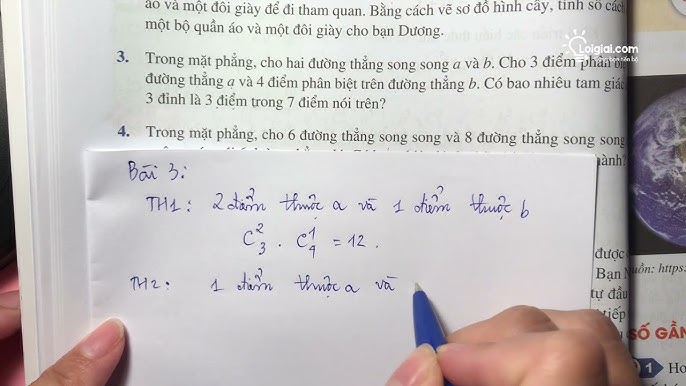 áo và một đôi giày để đi tham quan. Bằng cách vẽ sơ đồ hình cây, tính số cách
một bộ quần áo và một đôi giày cho bạn Dương.
Loigiai.com
3. Trong mặt phẳng, cho hai đường thẳng song song a và b. Cho 3 điểm phân
đường thẳng a và 4 điểm phân biệt trên đường thẳng b. Có bao nhiêu tam giác
3 đỉnh là 3 điểm trong 7 điểm nói trên?
4. Trong mặt phẳng, cho 6 đường thẳng song song và 8 đường thẳng song song
hành?
Bài 3:
TH1: 2 điểm thuộc a và 1 điểm thuộc b
C²₃ . C¹₄ = 12 .
TH2: 1 điểm thuộc a và
được
Bạn
tự đầu
tiếp
uồn: https:
SỐ GẦN
1 Ho